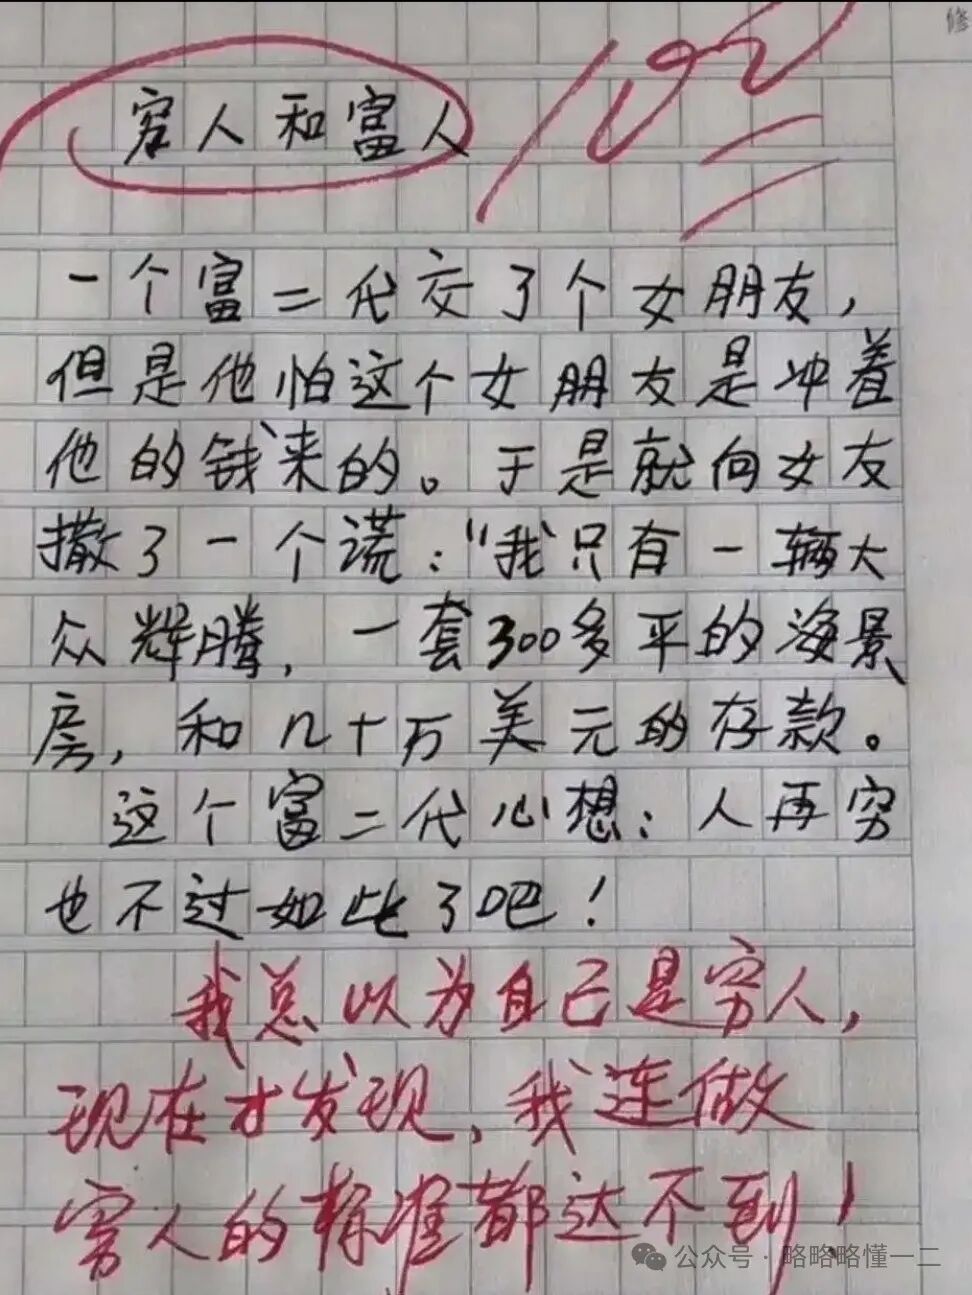 修
穷人和富人
102
一个富二代交了个女朋友，
但是他怕这个女朋友是冲着
他的钱来的。于是就向女友
撒了一个谎："我只有一辆大
众辉腾，一套300多平的海景
房，和几十万美元的存款。
这个富二代心想：人再穷
也不过如此了吧！
我总以为自己是穷人，
现在才发现，我连做
穷人的标准都达不到！
公众号·略略略懂一二